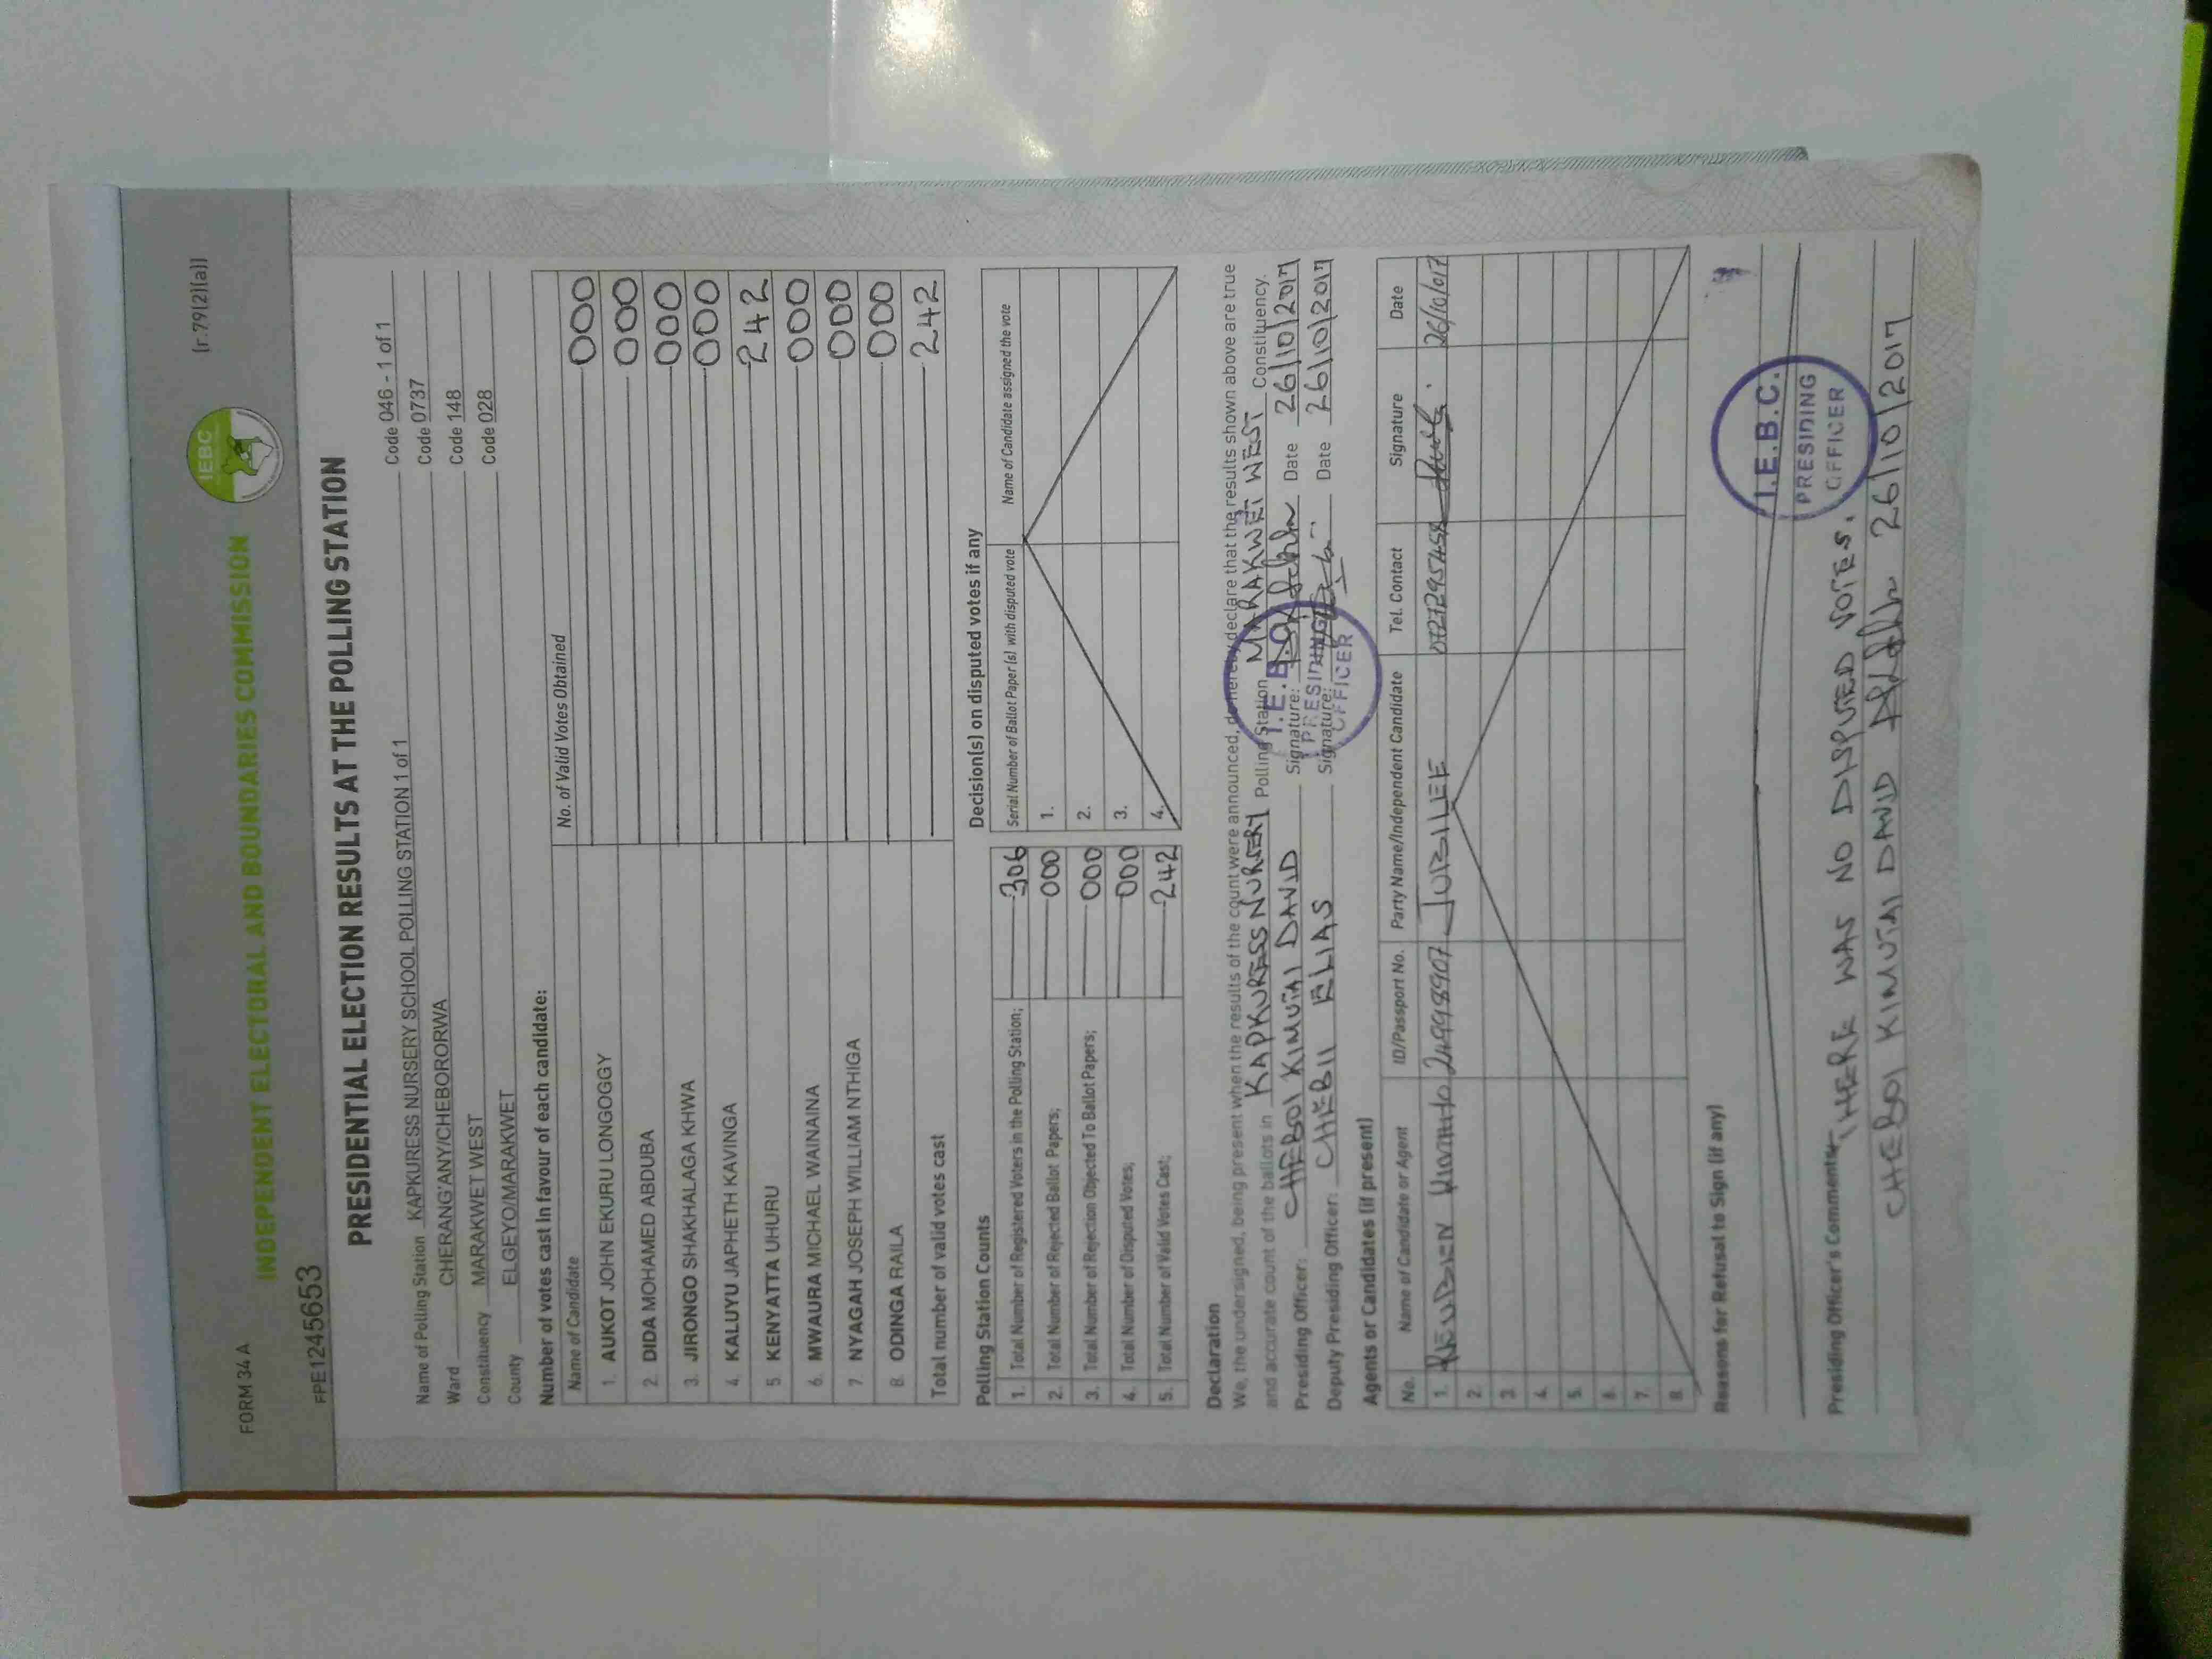 FORM 34 A
(r.79(2)(a))
IEBC
INDEPENDENT ELECTORAL AND BOUNDARIES COMMISSION
FPE1245653
PRESIDENTIAL ELECTION RESULTS AT THE POLLING STATION
Name of Polling Station KAPKURESS NURSERY SCHOOL POLLING STATION 1 of 1 Code 046 - 1 of 1
Ward CHERANG'ANY/CHEBORORWA Code 0737
Constituency MARAKWET WEST Code 148
County ELGEYO/MARAKWET Code 028
Number of votes cast in favour of each candidate:
Name of Candidate No. of Valid Votes Obtained
1. AUKOT JOHN EKURU LONGOGGY 000
2. DIDA MOHAMED ABDUBA 000
3. JIRONGO SHAKHALAGA KHWA 000
4. KALUYU JAPHETH KAVINGA 000
5. KENYATTA UHURU 242
6. MWAURA MICHAEL WAINAINA 000
7. NYAGAH JOSEPH WILLIAM NTHIGA 000
8. ODINGA RAILA 000
Total number of valid votes cast 242
Polling Station Counts
1. Total Number of Registered Voters in the Polling Station; 306
2. Total Number of Rejected Ballot Papers; 000
3. Total Number of Rejection Objected To Ballot Papers; 000
4. Total Number of Disputed Votes; 000
5. Total Number of Valid Votes Cast; 242
Decision(s) on disputed votes if any
Serial Number of Ballot Paper(s) with disputed vote Name of Candidate assigned the vote
1.
2.
3.
4.
Declaration
We, the undersigned, being present when the results of the count were announced, do hereby declare that the results shown above are true
and accurate count of the ballots in KAPKURESS NURSERY Polling Station MARAKWET WEST Constituency.
Presiding Officer: CHEBOI KIMUTAI DAVID Signature: Date 26/10/2017
Deputy Presiding Officer: CHEBII ELIAS Signature: Date 26/10/2017
I.E.B.C.
PRESIDING
OFFICER
Agents or Candidates (if present)
No. Name of Candidate or Agent ID/Passport No. Party Name/Independent Candidate Tel. Contact Signature Date
1. REUBEN 24998907 JUBILEE 26/10/017
2.
3.
4.
5.
6.
7.
8.
Reasons for Refusal to Sign (if any)
I.E.B.C.
PRESIDING
OFFICER
Presiding Officer's Comments THERE WAS NO DISPUTED VOTES.
CHEBOI KIMUTAI DAVID 26/10/2017